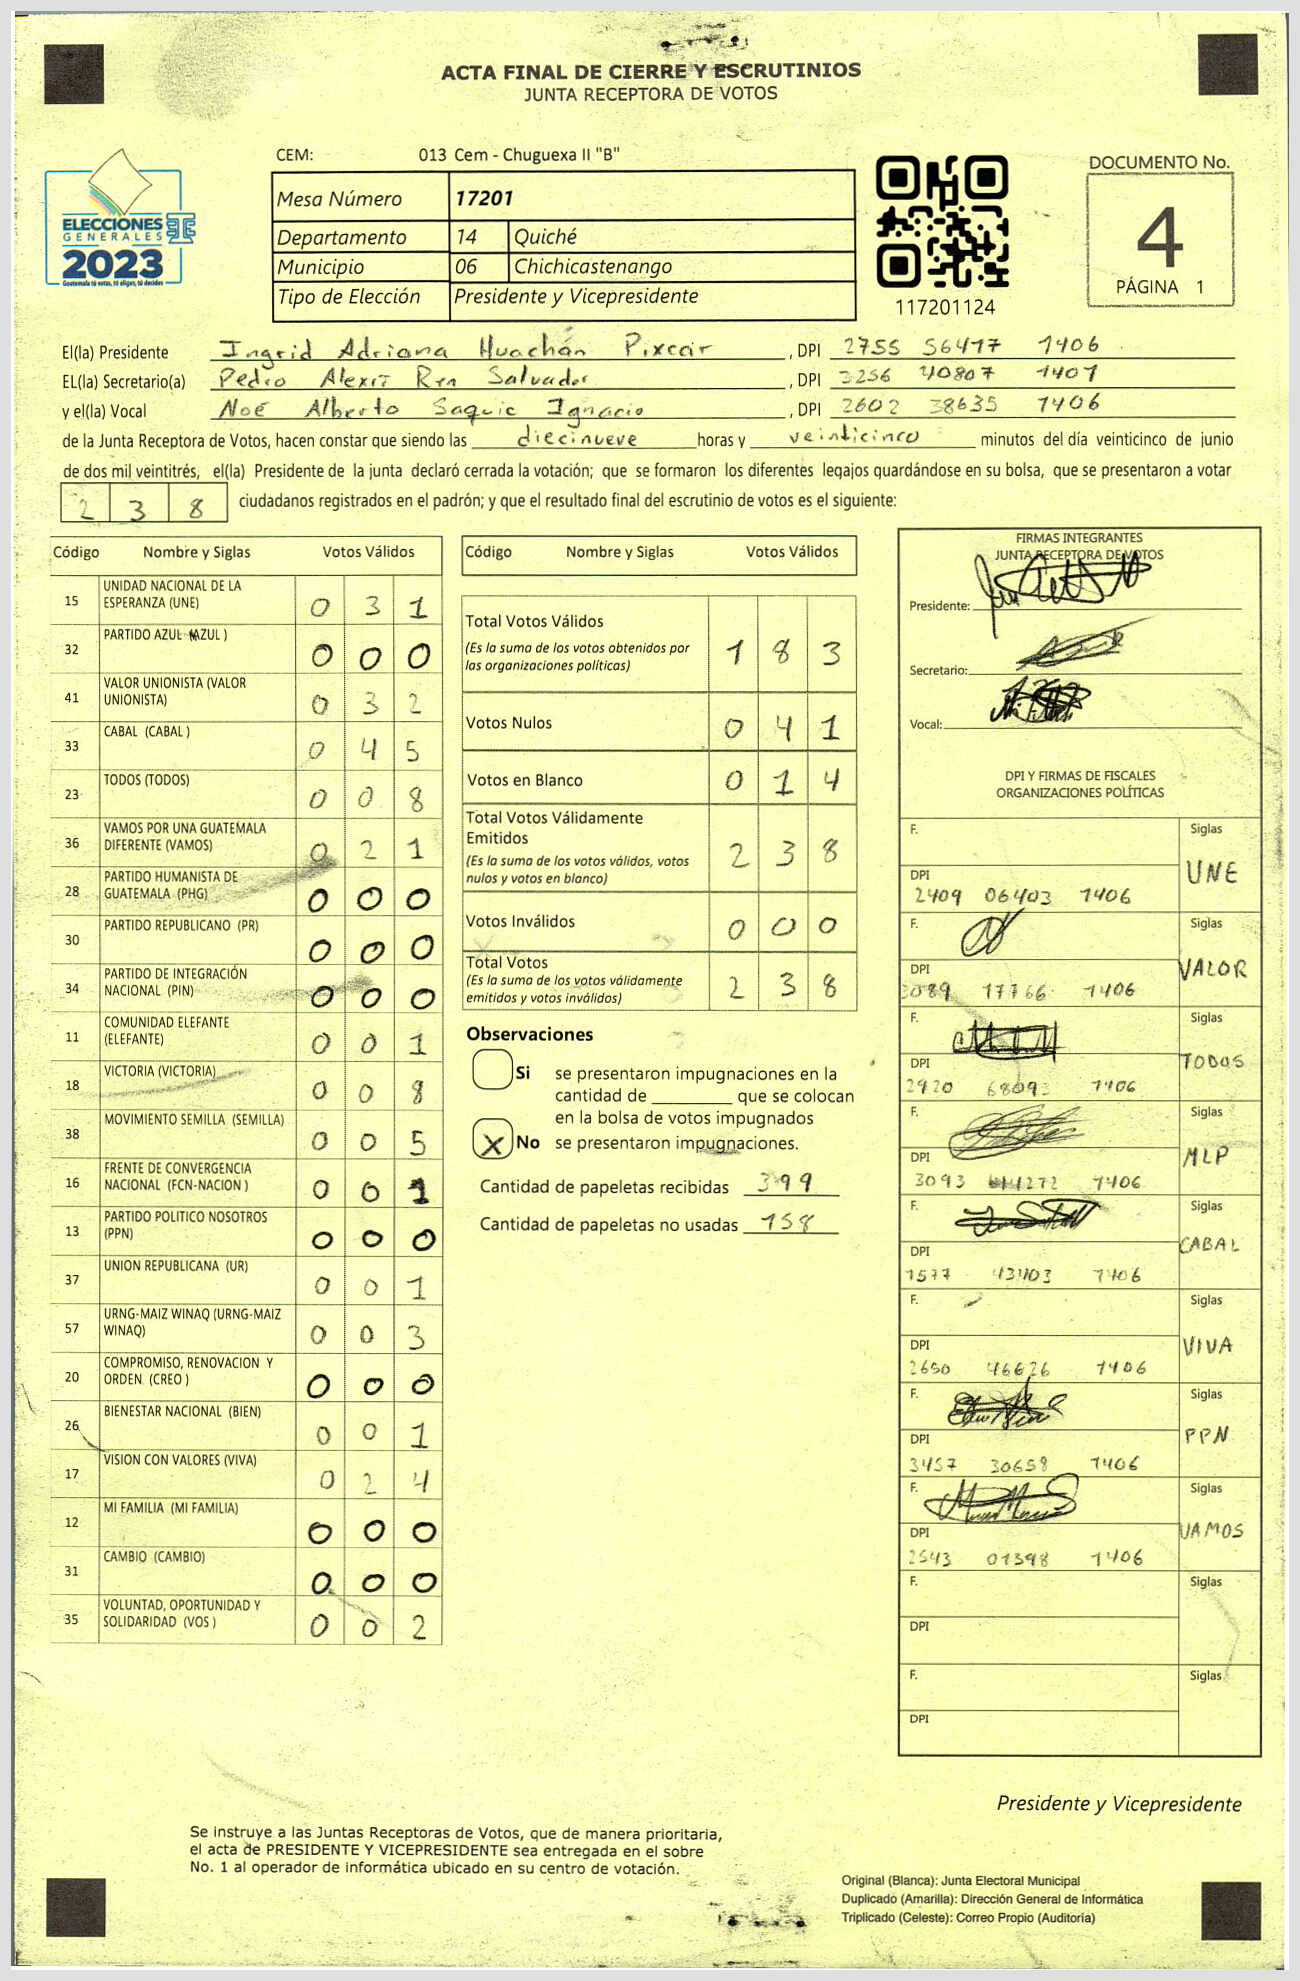 ACTA FINAL DE CIERRE Y ESCRUTINIOS
JUNTA RECEPTORA DE VOTOS
CEM: 013 Cem - Chuguexa II "B"
ELECCIONES
GENERALES
2023
Guatemala tú votas, tú eliges, tú decides
Mesa Número 17201
Departamento 14 Quiché
Municipio 06 Chichicastenango
Tipo de Elección Presidente y Vicepresidente
117201124
DOCUMENTO No.
4
PÁGINA 1
El(la) Presidente Ingrid Adriana Huachán Pixcar , DPI 2755 56417 1406
EL(la) Secretario(a) Pedro Alexit Ren Salvador , DPI 3256 40807 1401
y el(la) Vocal Noé Alberto Saquic Ignacio , DPI 2602 38635 1406
de la Junta Receptora de Votos, hacen constar que siendo las diecinueve horas y veinticinco minutos del día veinticinco de junio
de dos mil veintitrés, el(la) Presidente de la junta declaró cerrada la votación; que se formaron los diferentes legajos guardándose en su bolsa, que se presentaron a votar
238 ciudadanos registrados en el padrón; y que el resultado final del escrutinio de votos es el siguiente:
Código Nombre y Siglas Votos Válidos
15 UNIDAD NACIONAL DE LA ESPERANZA (UNE) 0 3 1
32 PARTIDO AZUL (AZUL ) 0 0 0
41 VALOR UNIONISTA (VALOR UNIONISTA) 0 3 2
33 CABAL (CABAL ) 0 4 5
23 TODOS (TODOS) 0 0 8
36 VAMOS POR UNA GUATEMALA DIFERENTE (VAMOS) 0 2 1
28 PARTIDO HUMANISTA DE GUATEMALA (PHG) 0 0 0
30 PARTIDO REPUBLICANO (PR) 0 0 0
34 PARTIDO DE INTEGRACIÓN NACIONAL (PIN) 0 0 0
11 COMUNIDAD ELEFANTE (ELEFANTE) 0 0 1
18 VICTORIA (VICTORIA) 0 0 8
38 MOVIMIENTO SEMILLA (SEMILLA) 0 0 5
16 FRENTE DE CONVERGENCIA NACIONAL (FCN-NACION ) 0 0 1
13 PARTIDO POLITICO NOSOTROS (PPN) 0 0 0
37 UNION REPUBLICANA (UR) 0 0 1
57 URNG-MAIZ WINAQ (URNG-MAIZ WINAQ) 0 0 3
20 COMPROMISO, RENOVACION Y ORDEN (CREO ) 0 0 0
26 BIENESTAR NACIONAL (BIEN) 0 0 1
17 VISION CON VALORES (VIVA) 0 2 4
12 MI FAMILIA (MI FAMILIA) 0 0 0
31 CAMBIO (CAMBIO) 0 0 0
35 VOLUNTAD, OPORTUNIDAD Y SOLIDARIDAD (VOS ) 0 0 2
Código Nombre y Siglas Votos Válidos
Total Votos Válidos 1 8 3
(Es la suma de los votos obtenidos por
las organizaciones políticas)
Votos Nulos 0 4 1
Votos en Blanco 0 1 4
Total Votos Válidamente
Emitidos 2 3 8
(Es la suma de los votos válidos, votos
nulos y votos en blanco)
Votos Inválidos 0 0 0
Total Votos 2 3 8
(Es la suma de los votos válidamente
emitidos y votos inválidos)
Observaciones
Si se presentaron impugnaciones en la
cantidad de ________ que se colocan
en la bolsa de votos impugnados
X No se presentaron impugnaciones.
Cantidad de papeletas recibidas 399
Cantidad de papeletas no usadas 158
FIRMAS INTEGRANTES
JUNTA RECEPTORA DE VOTOS
Presidente:
Secretario:
Vocal:
DPI Y FIRMAS DE FISCALES
ORGANIZACIONES POLÍTICAS
F. Siglas UNE
DPI 2409 06403 1406
F. Siglas VALOR
DPI 3089 17766 1406
F. Siglas TODOS
DPI 2920 68093 1406
F. Siglas MLP
DPI 3093 1406
F. Siglas CABAL
DPI 1577 43403 1406
F. Siglas VIVA
DPI 2650 46626 1406
F. Siglas PPN
DPI 3457 30658 1406
F. Siglas VAMOS
DPI 2543 01398 1406
F. Siglas
DPI
F. Siglas
DPI
Presidente y Vicepresidente
Se instruye a las Juntas Receptoras de Votos, que de manera prioritaria,
el acta de PRESIDENTE Y VICEPRESIDENTE sea entregada en el sobre
No. 1 al operador de informática ubicado en su centro de votación.
Original (Blanca): Junta Electoral Municipal
Duplicado (Amarilla): Dirección General de Informática
Triplicado (Celeste): Correo Propio (Auditoría)